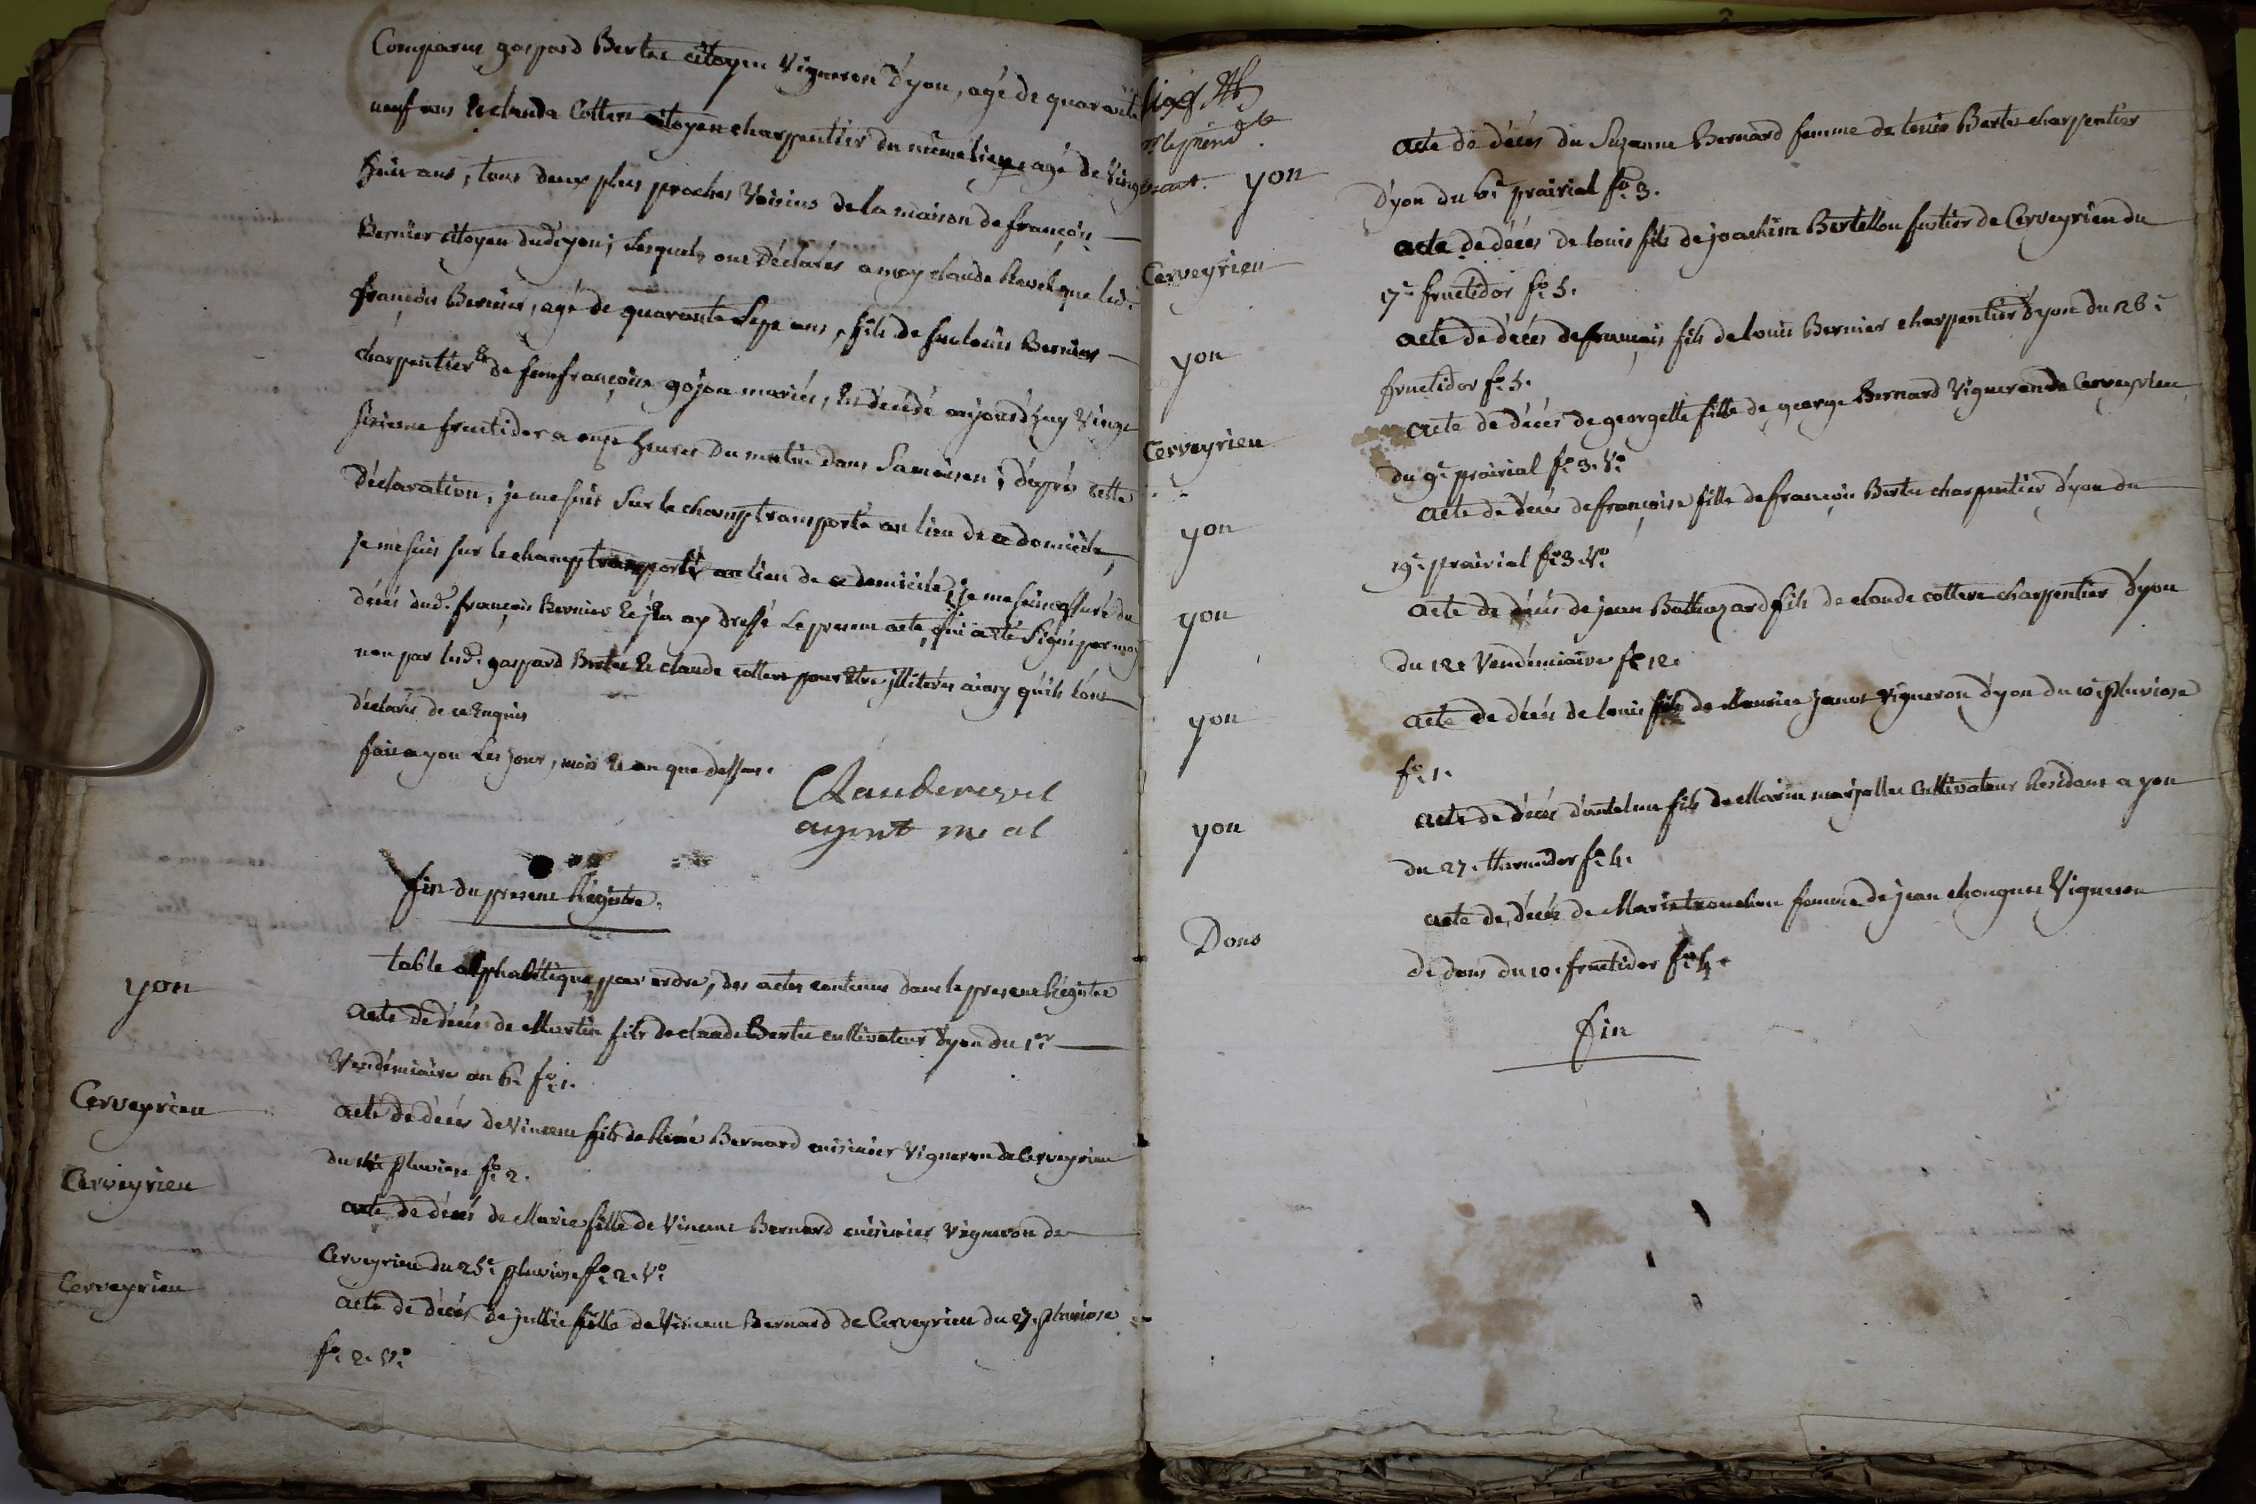 Comparus gaspard Bertet citoyen Vigneron d'yon, agé de quarante
neuf ans Et claude Cottere citoyen charpentier du même lieu, agé de Vingt
huit ans, tous deux plus proches Voisins de la maison de françois
Bernier citoyen dud. yon; Lesquels ont Déclarés a moy claude Revel que led.
françois Bernier, agé de quarante Sept ans, fils de feu louis Bernier
charpentier Et de feue françoise gojon mariés, Est decédé aujourd'huy Vingt
sixieme fructidor a onze heures Du matin dans Sa maison; d'après cette
Déclaration, je me suis Sur le champ transporté au lieu de ce domicile,
je me suis sur le champ transporté au lieu de ce domicile, je me suis assuré du
décés dud. françois Bernier Et j'En ay dressé Le present acte, qui a été Signé par moy
non par lesd. gaspard Bertet Et claude cottere pour Etre jlliterés ainsy qu'ils l'ont
déclarés de ce Enquis
fait a yon Les jour, mois Et an que dessus.
Claude revel
agent m al
fin du present Régistre.
table alphabétique, par ordre, des actes contenus dans le present Régistre
yon
Acte de décés de Martin fils de claude Bertet cultivateur d'yon du 1er
Vendémiaire an 6e fo. 1.
Cerveyrieu
acte de décés de Vincent fils de Réné Bernard cuisinier Vigneron de Cerveyrieu
du pluviose fo. 2.
Cerveyrieu
acte de décés de Marie fille de Vincent Bernard cuisinier Vigneron de
Cerveyrieu du 25e pluviose fo. 2. Vo.
Cerveyrieu
acte de décés de jullie fille de Vincent Bernard de Cerveyrieu du 27. pluviose
fo. 2. Vo.
yon
acte de décés du Suzanne Bernard femme de louis Bertet charpentier
d'yon du 6e prairial fo. 3.
Cerveyrieu
acte de décés de louis fils de joachim Bertellon fustier de Cerveyrieu du
17e fructidor fo. 5.
yon
acte de décés de françois fils de louis Bernier charpentier d'yon du 26e
fructidor fo. 5.
Cerveyrieu
acte de décés de georgette fille de george Bernard Vigneron de Cerveyrieu
du 9e prairial fo. 3. Vo.
yon
acte de décés de françoise fille de françois Bertet charpentier d'yon du
19e prairial fo. 3. Vo.
yon
acte de décés de jean Balthazard fils de claude cottere charpentier d'yon
du 12e Vendémiaire fo 12.
yon
acte de décés de louis fils de Maurice janot Vigneron d'yon du 10e pluviose
fo. 1.
yon
acte de décés d'antelme fils de Marin marjollet Cultivateur Résidant a yon
du 27. thermidor fo. 4.
Dons
acte de décés de Marie tronchon femme de jean chongnet Vigneron
de dons du 10. fructidor fo. 4.
fin